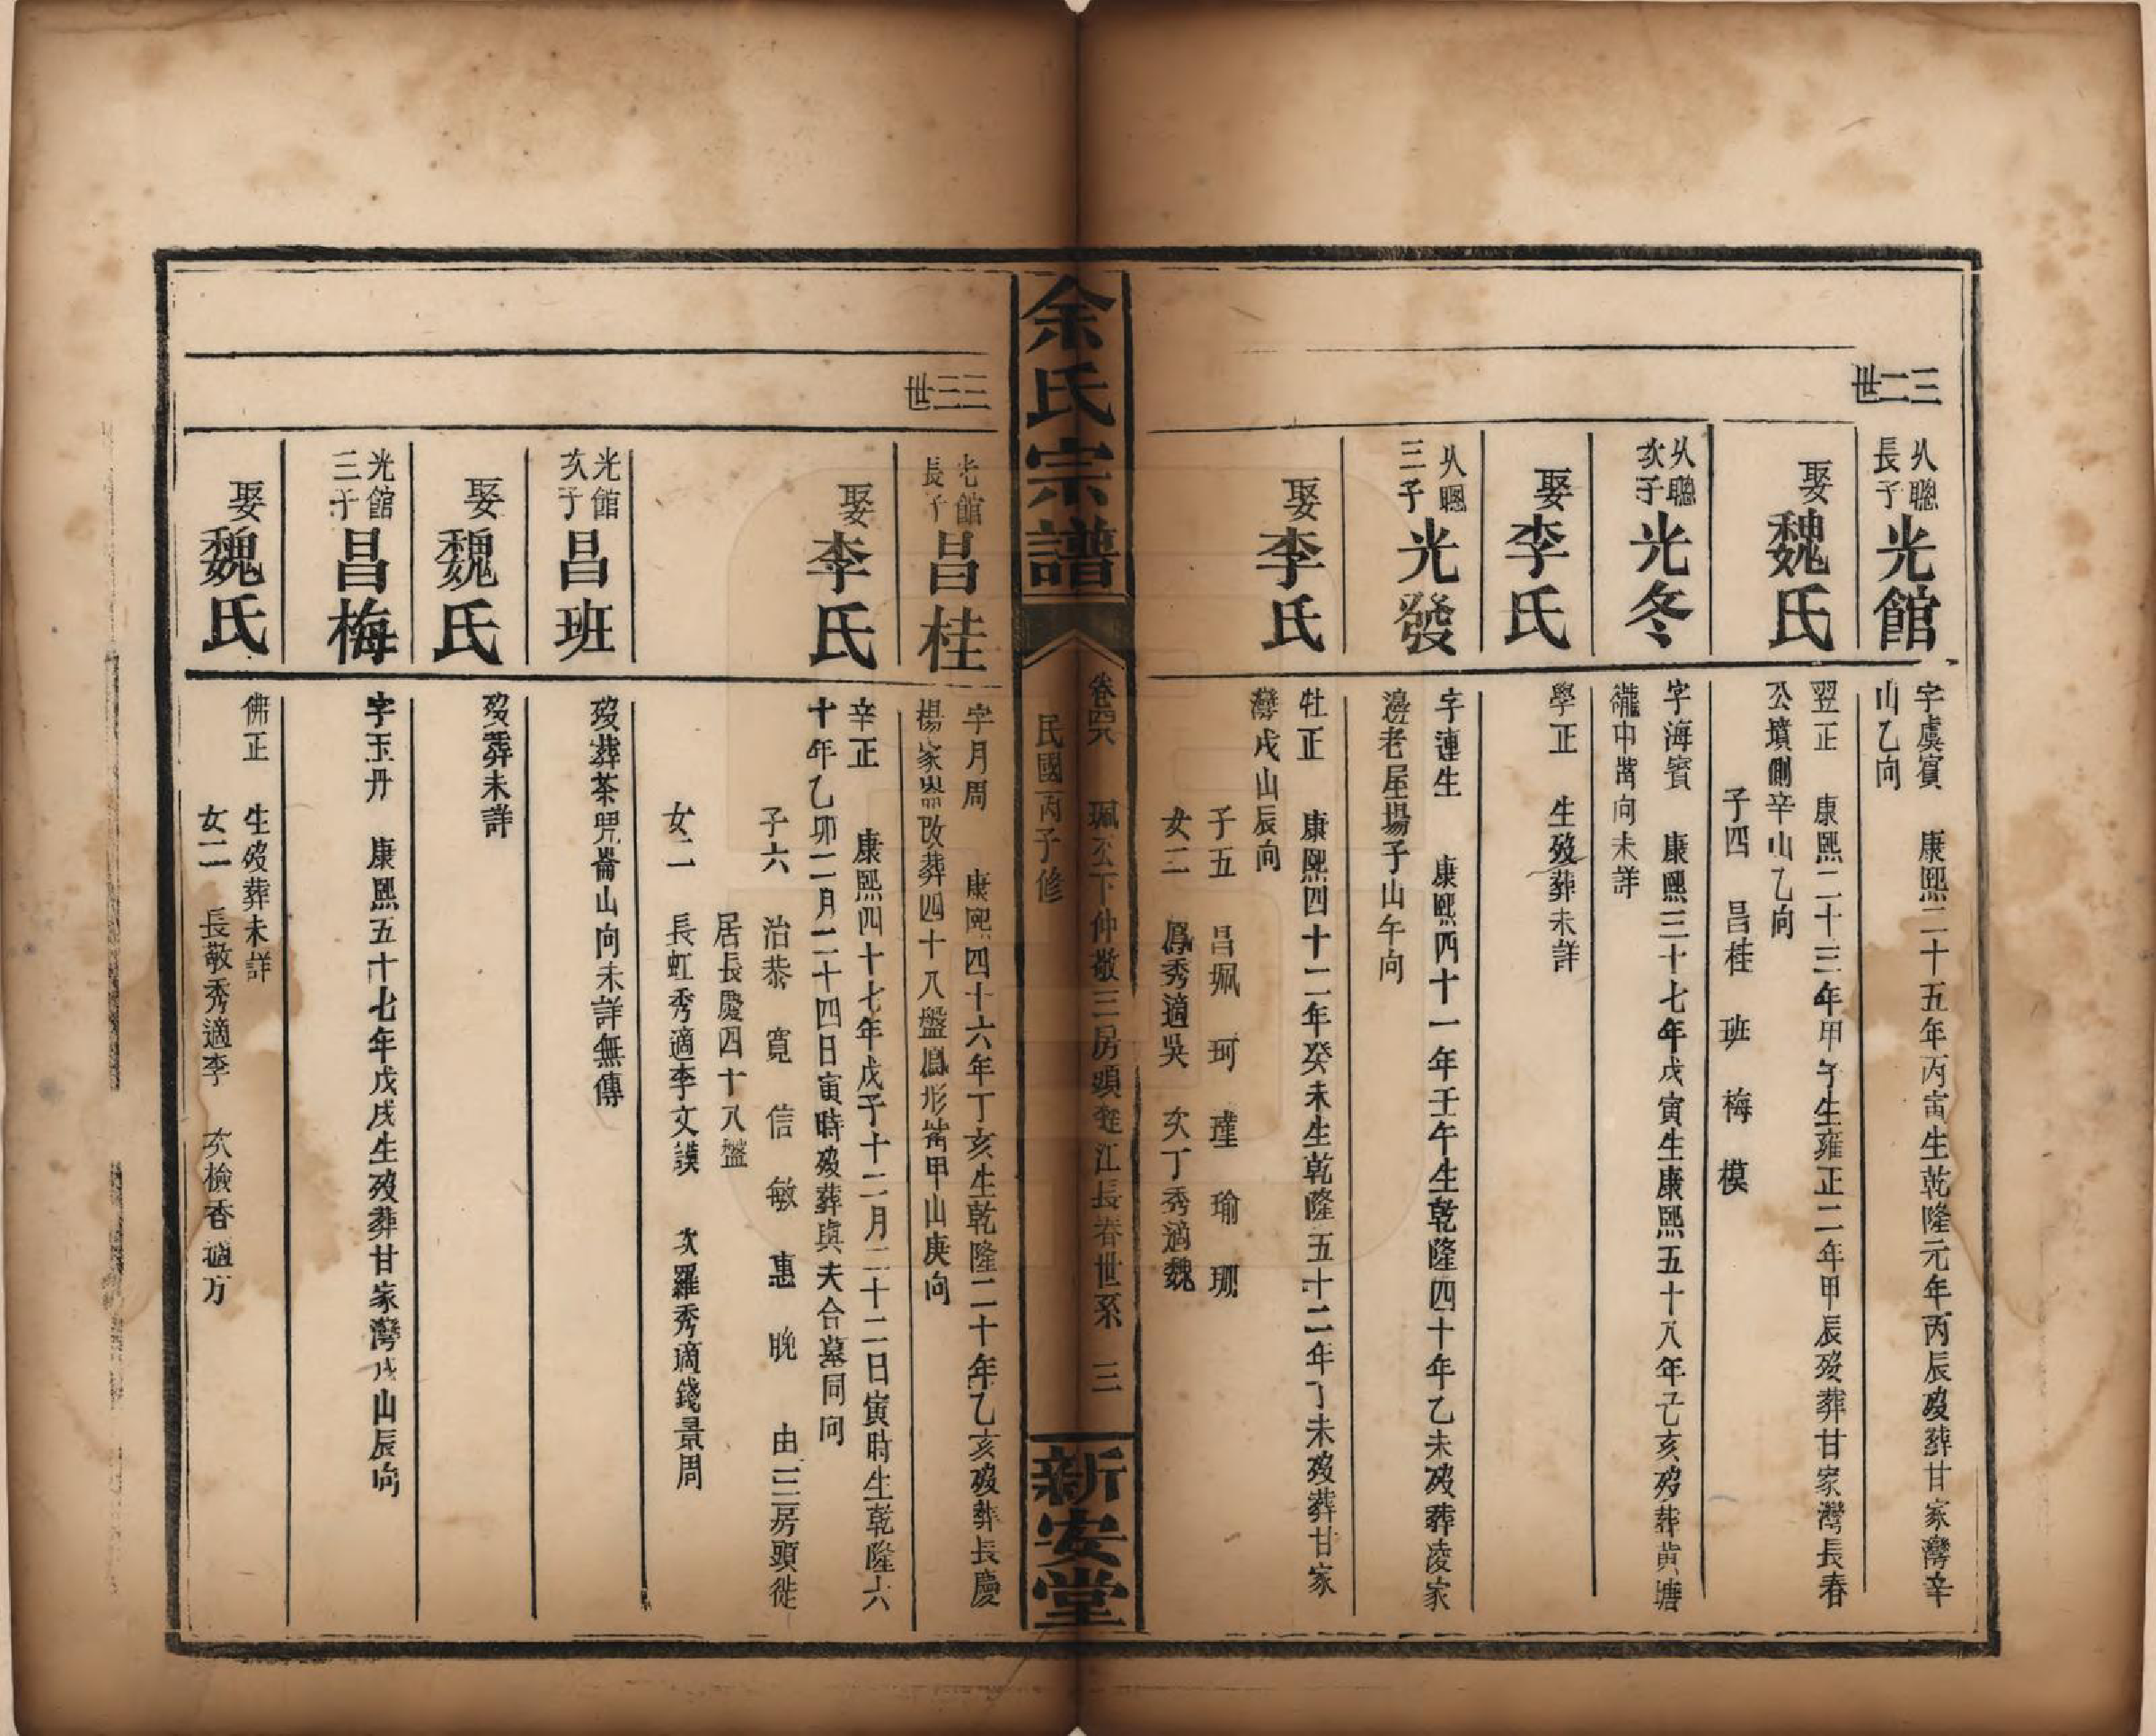 三二世
从聰
長子
光館
字虞賓 康熙二十五年丙寅生乾隆元年丙辰歿葬甘家灣辛
山乙向
娶魏氏
翌正 康熙二十三年甲午生雍正二年甲辰歿葬甘家灣長春
公墳側辛山乙向
子四 昌桂 班 梅 模
从聰
次子
光冬
字海賓 康熙三十七年戊寅生康熙五十八年己亥歿葬黄塘
衝中嵩向未詳
娶李氏
學正 生歿葬未詳
从聰
三子
光發
字連生 康熙四十一年壬午生乾隆四十年乙未歿葬凌家
邊老屋場子山午向
娶李氏
牡正 康熙四十二年癸未生乾隆五十二年丁未歿葬甘家
灣戌山辰向
子五 昌珮 珂 瑾 瑜 珊
女二 鳳秀適吳 次丁秀適魏
余氏宗譜
卷四六 珮公下仲敬三房頭遷江長春世系 三
民國丙子修
新安堂
三三世
光館
長子
昌桂
字月周 康熙四十六年丁亥生乾隆二十年乙亥歿葬長慶
楊家嶴改葬四十八盤鳳形嵩甲山庚向
娶李氏
辛正 康熙四十七年戊子十二月二十二日寅時生乾隆六
十年乙卯二月二十四日寅時歿葬與夫合墓同向
子六 治恭 寬 信 敏 惠 晚 由三房頭徙
居長慶四十八盤
女二 長虹秀適李文謨 次羅秀適錢景周
光館
次子
昌班
歿葬茶咒崙山向未詳無傳
娶魏氏
歿葬未詳
光館
三子
昌梅
字玉丹 康熙五十七年戊戌生歿葬甘家灣戌山辰向
娶魏氏
佛正 生歿葬未詳
女二 長敬秀適李 次檢香適方